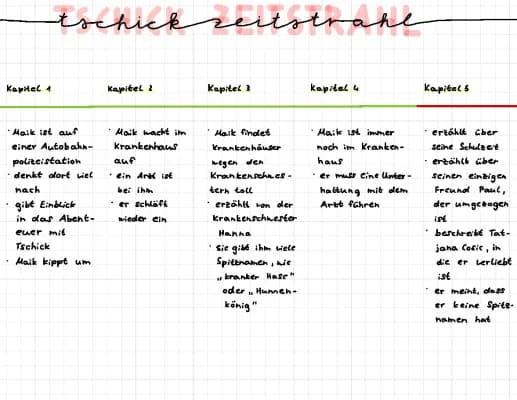 TSCHICK ZEITSTRAHL
tschick zeitstrahl
Kapitel 1
· Maik ist auf
einer Autobahn-
polizeistation
· denkt dort viel
nach
· gibt Einblick
in das Abent-
euer mit
Tschick
· Maik kippt um
Kapitel 2
· Maik wacht im
Krankenhaus
auf
· ein Arzt ist
bei ihm
· er schläft
wieder ein
Kapitel 3
· Maik findet
Krankenhäuser
wegen den
Krankenschwes-
tern toll
· erzählt von der
Krankenschwester
Hanna
· sie gibt ihm viele
Spitznamen, wie
„kranker Hase"
oder „Hunnen-
könig"
Kapitel 4
· Maik ist immer
noch im Kranken-
haus
· er muss eine Unter-
haltung mit dem
Arzt führen
Kapitel 5
· erzählt über
seine Schulzeit
· erzählt über
seinen einzigen
Freund Paul,
der umgezogen
ist
· beschreibt Tat-
jana Cosic, in
die er verliebt
ist
· er meint, dass
er keine Spitz-
namen hat